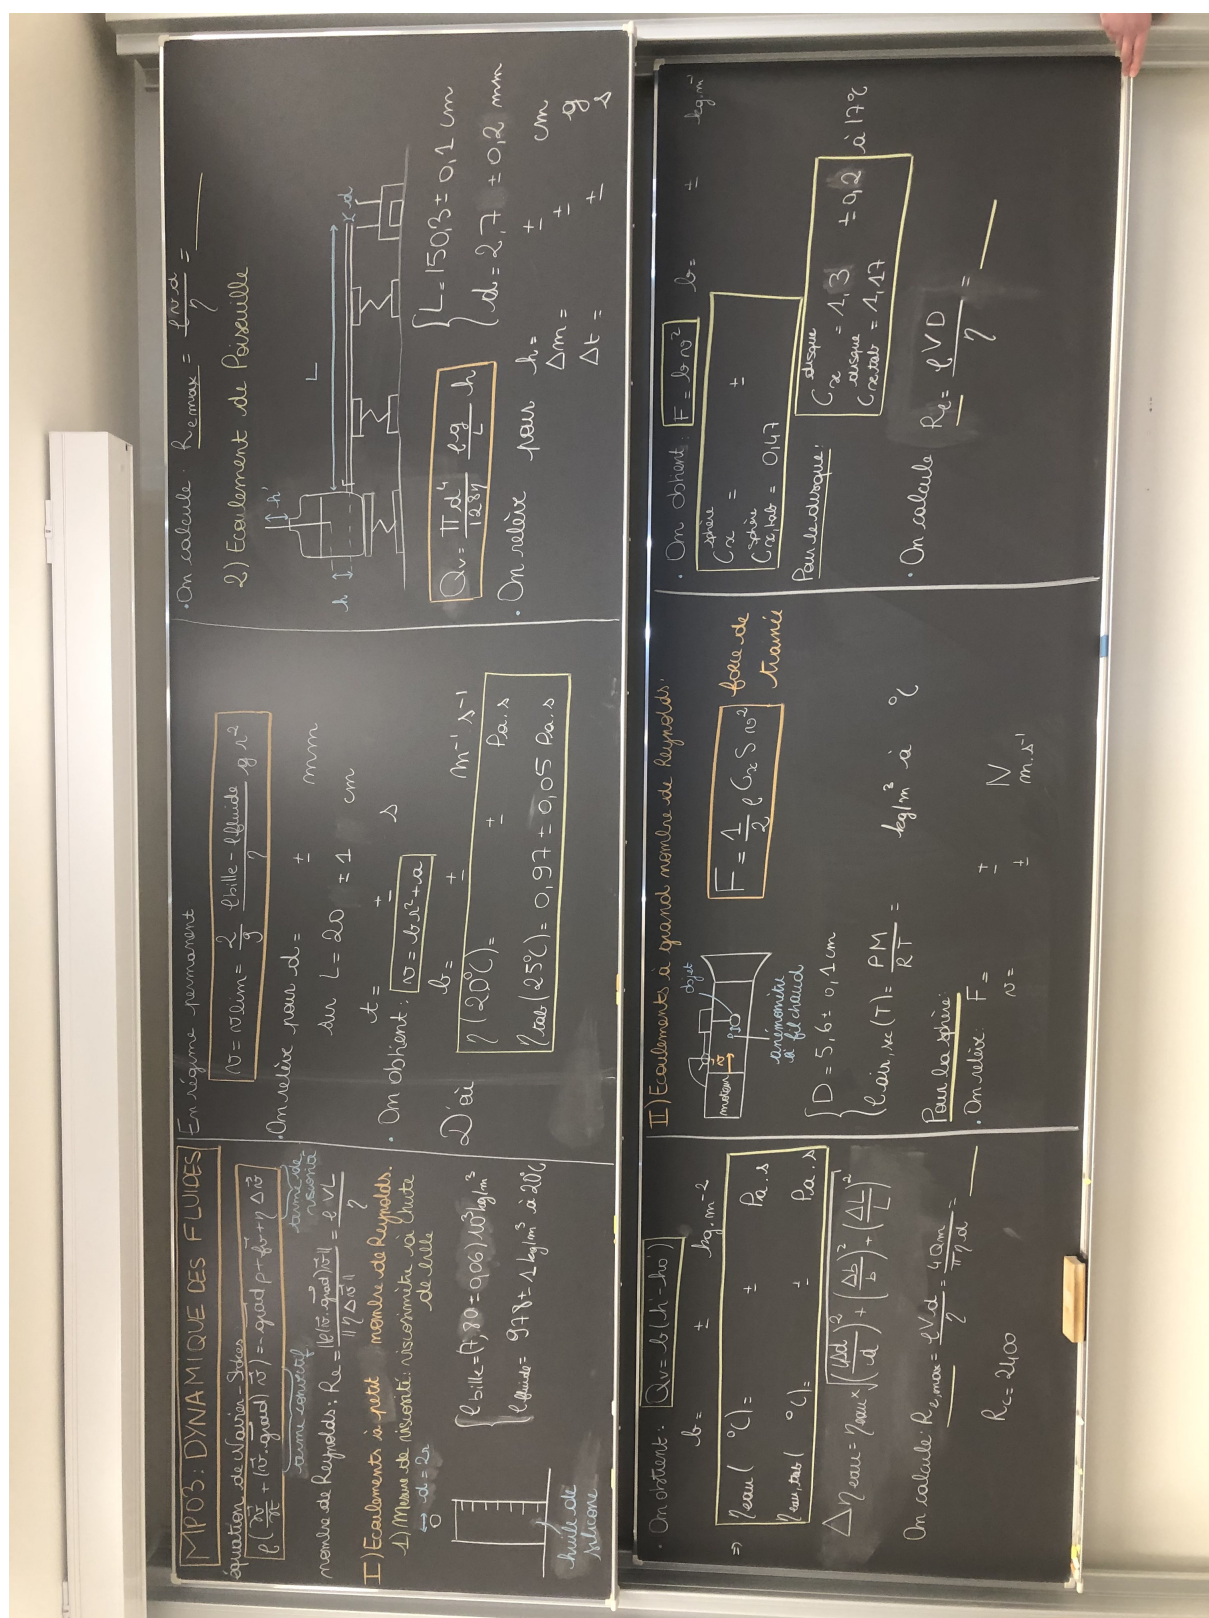 MP03: DYNAMIQUE DES FLUIDES
équation de Navier-Stokes
ρ(∂v⃗/∂t + (v⃗.grad⃗) v⃗) = -grad⃗ p + f⃗v + η Δv⃗
terme convectif
terme de viscosité
nombre de Reynolds: Re = ||ρ(v⃗.grad⃗)v⃗|| / ||η Δv⃗|| = ρVL/η
I) Ecoulements à petit nombre de Reynolds.
1) Mesure de viscosité: viscosimètre à chute de bille
d = 2r
ρbille = (7,80 ± 0,06) 10³ kg/m³
ρfluide = 978 ± 1 kg/m³ à 20°C
huile de silicone
En régime permanent
v = v lim = 2/9 (ρbille - ρfluide)/η g r²
• On relève pour d = ± mm
sur L = 20 ± 1 cm
t = ± s
• On obtient: v = br² + a
b = ± m⁻¹ s⁻¹
D'où
η (20°C) = ± Pa.s
ηtab (25°C) = 0,97 ± 0,05 Pa.s
• On calcule: Remax = ρvd/η =
2) Ecoulement de Poiseuille
h
h'
L
d
Qv = πd⁴/128η ρg/L h
L = 150,3 ± 0,1 cm
d = 2,7 ± 0,2 mm
• On relève pour h = ± cm
Δm = ± g
Δt = ± s
• On obtient: Qv = b(h'-h0)
b = ± kg.m⁻²
⇒ ηeau ( °C) = ± Pa.s
ηeau,tab ( °C) = ± Pa.s
Δηeau = ηeau × √((4Δd/d)² + (Δb/b)² + (ΔL/L)²)
On calcule: Re,max = ρVd/η = 4Qm/πηd =
Rc = 2400
II) Ecoulements à grand nombre de Reynolds:
moteur
v⃗
objet
anémomètre à fil chaud
F = 1/2 ρ Cx S v²
force de trainée
D = 5,6 ± 0,1 cm
ρair,sec (T) = PM/RT = kg/m³ à °C
Pour la sphère:
• On relève: F = ± N
v = ± m.s⁻¹
• On obtient: F = b v² b = ± kg.m⁻¹
Cx sphère = ±
Cx,tab sphère = 0,47
Pour le disque:
Cx disque = 1,3 ± 0,2 à 17°C
Cx,tab disque = 1,17
• On calcule Re = ρVD/η =